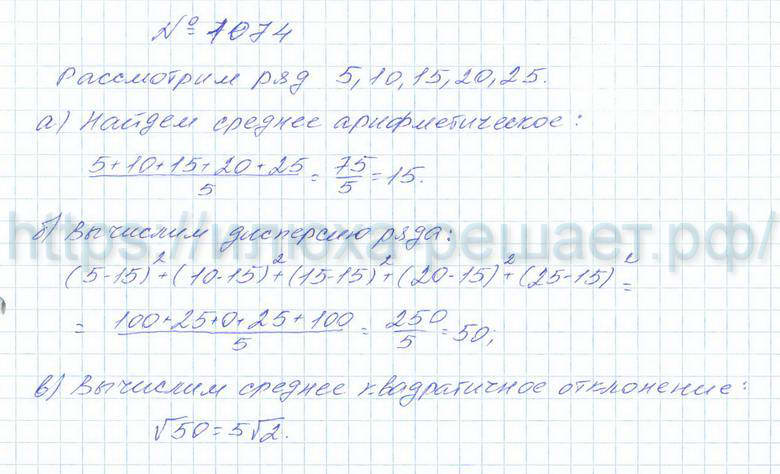 № 1074
Рассмотрим ряд 5, 10, 15, 20, 25.
а) Найдем среднее арифметическое:
(5+10+15+20+25)/5 = 75/5 = 15.
https://илюха-решает.рф/
б) Вычислим дисперсию ряда:
(5-15)² + (10-15)² + (15-15)² + (20-15)² + (25-15)² =
= (100+25+0+25+100)/5 = 250/5 = 50;
в) Вычислим среднее квадратичное отклонение:
√50 = 5√2.